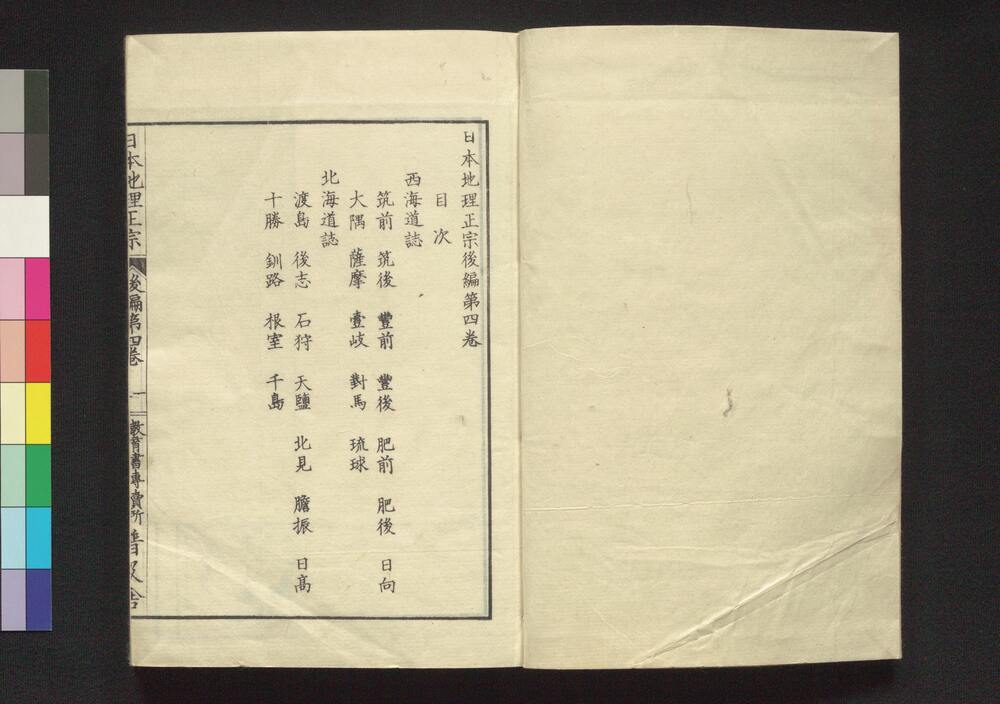 日本地理正宗後編第四卷
目次
西海道誌
筑前 筑後 豐前 豐後 肥前 肥後 日向
大隅 薩摩 壹岐 對馬 琉球
北海道誌
渡島 後志 石狩 天鹽 北見 膽振 日高
十勝 釧路 根室 千島
日本地理正宗 後編第四卷 一 教育書專賣所 普及舍